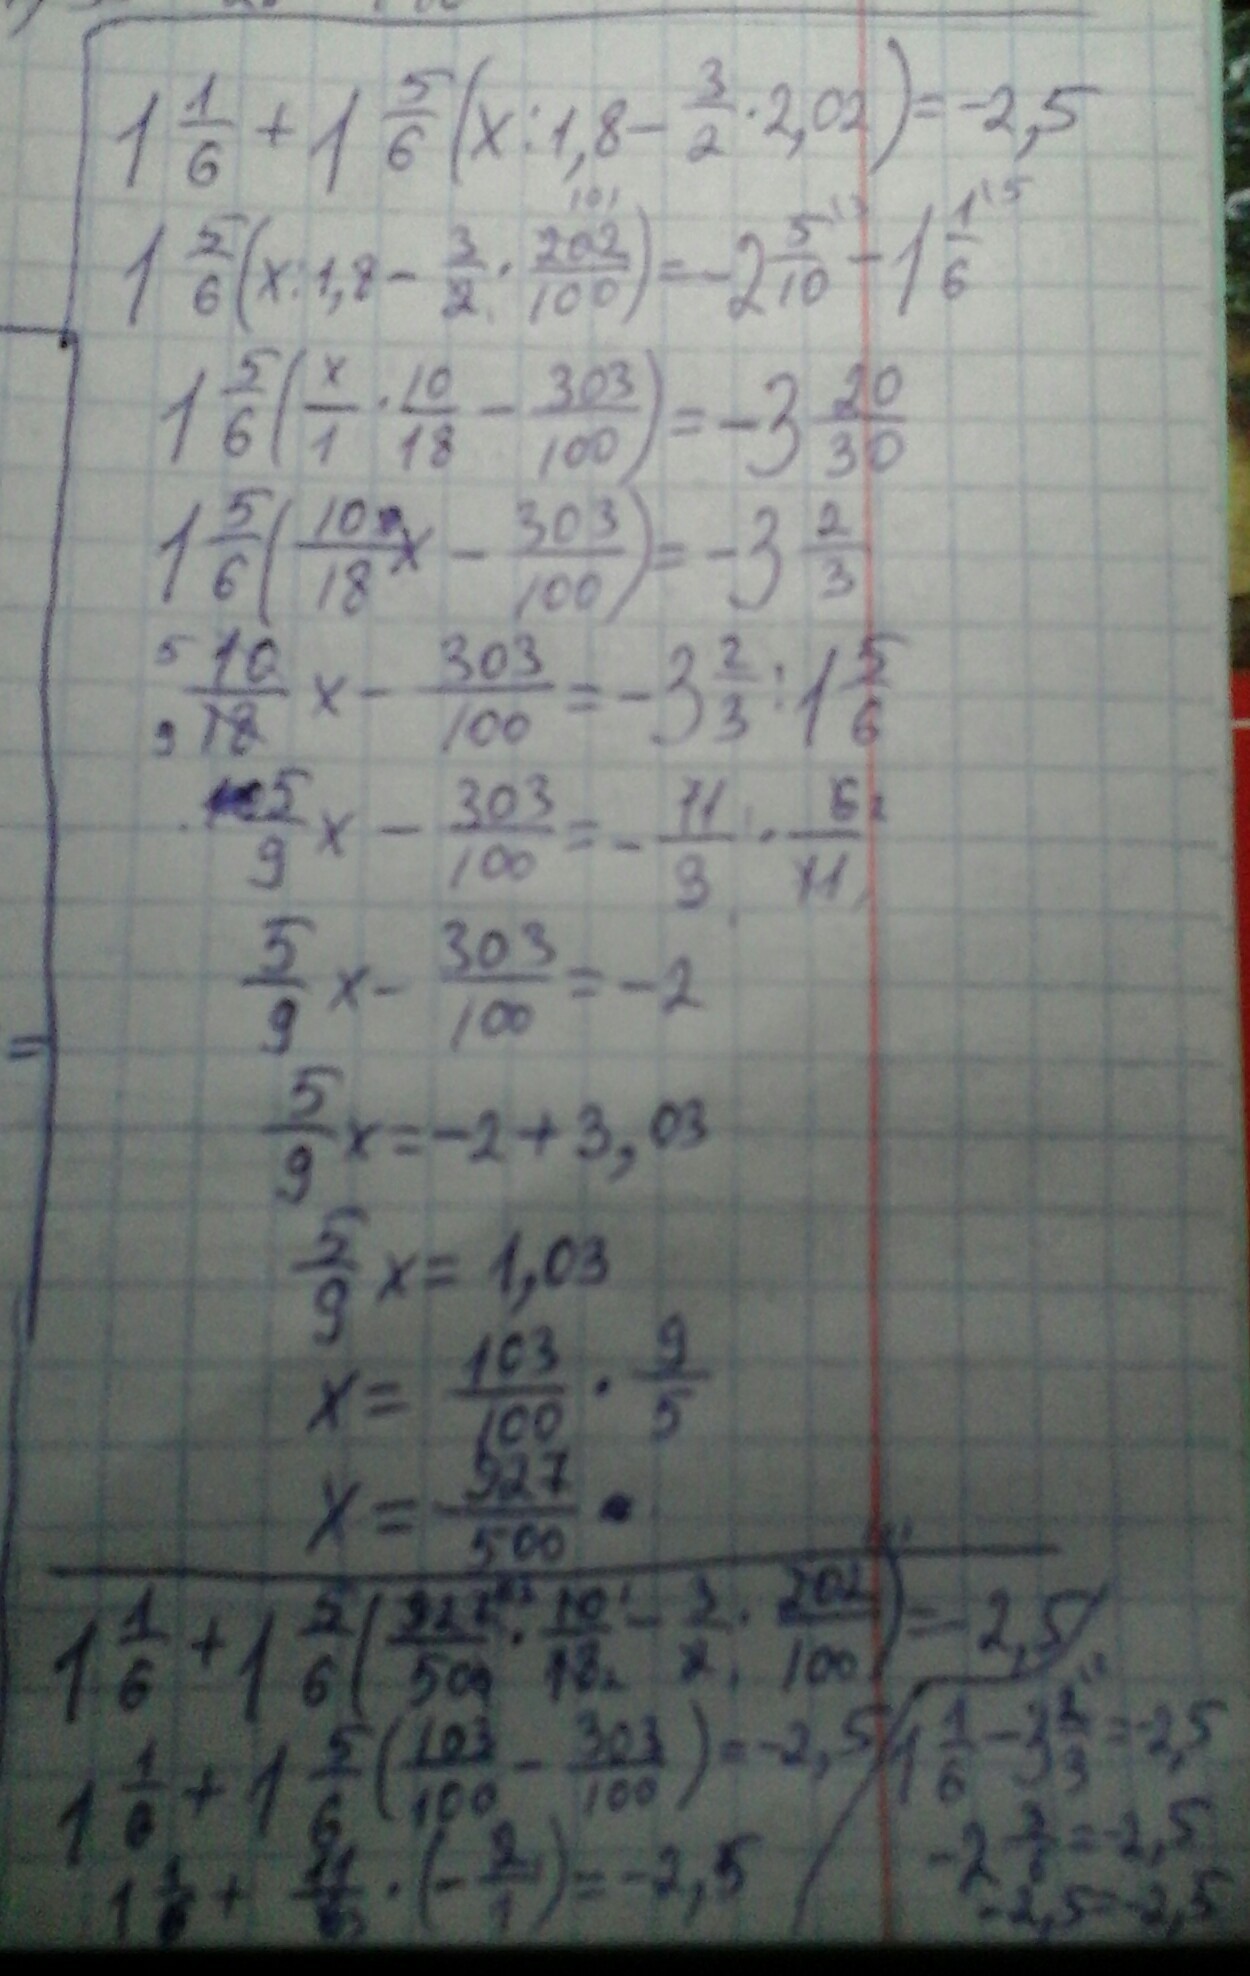 1 1/6 + 1 5/6 (x : 1,8 - 3/2 · 2,02) = -2,5
1 5/6 (x : 1,8 - 3/2 · 202/100) = -2 5/10 - 1 1/6
1 5/6 (x/1 · 10/18 - 303/100) = -3 20/30
1 5/6 (10/18 x - 303/100) = -3 2/3
10/18 x - 303/100 = -3 2/3 : 1 5/6
5/9 x - 303/100 = - 11/3 · 6/11
5/9 x - 303/100 = -2
5/9 x = -2 + 3,03
5/9 x = 1,03
x = 103/100 · 9/5
x = 927/500
1 1/6 + 1 5/6 (927/500 · 10/18 - 3/2 · 202/100) = -2,5
1 1/6 + 1 5/6 (103/100 - 303/100) = -2,5
1 1/6 + 11/6 · (- 2/1) = -2,5
1 1/6 - 3 2/3 = -2,5
-2 3/6 = -2,5
-2,5 = -2,5